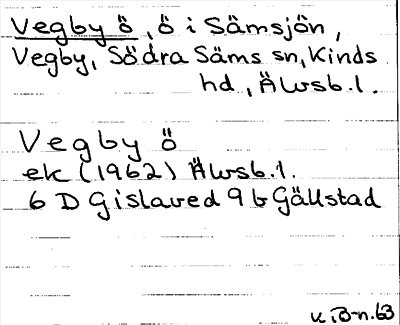 Vegby ö, ö i Sämsjön,
Vegby, Södra Säms sn, Kinds
hd., Älvsb. l.
Vegby ö
ek (1962) Älvsb. l.
6 D Gislaved 9 b Gällstad